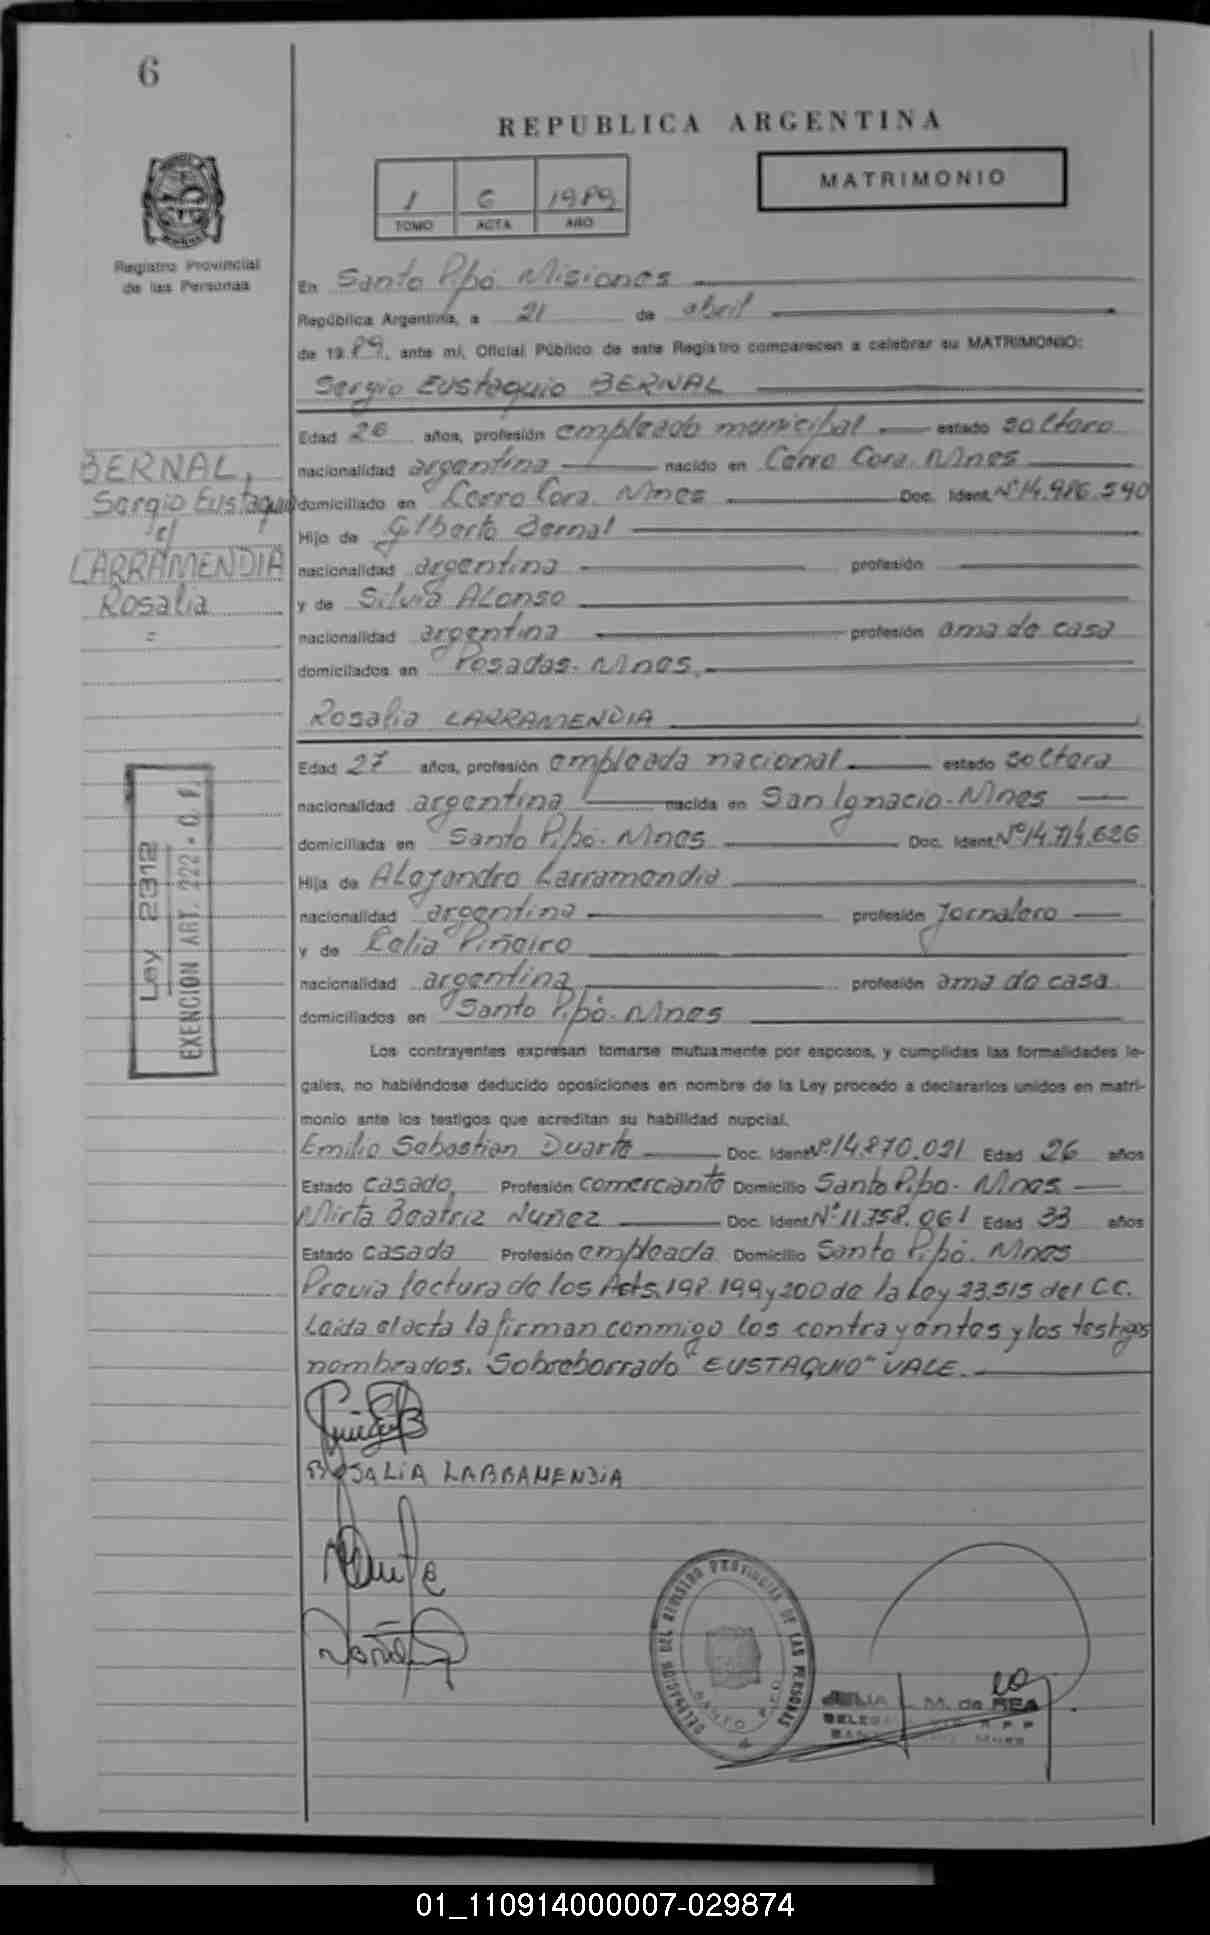 6
REPUBLICA ARGENTINA
1 6 1989
TOMO ACTA AÑO
MATRIMONIO
Registro Provincial
de las Personas
En Santo Pipó. Misiones
República Argentina, a 21 de abril
de 1989, ante mí, Oficial Público de este Registro comparecen a celebrar su MATRIMONIO:
Sergio EUSTAQUIO BERNAL
Edad 26 años, profesión empleado municipal estado soltero
nacionalidad argentina nacido en Cerro Cora. Mnes
domiciliado en Cerro Cora. Mnes Doc. Ident. Nº 14.986.590
Hijo de Gilberto Bernal
nacionalidad argentina profesión
y de Silvia ALonso
nacionalidad argentina profesión ama de casa
domiciliados en Posadas. Mnes.
BERNAL,
Sergio Eustaquio
c/
LARRAMENDIA
Rosalia
=
Rosalia LARRAMENDIA
Edad 27 años, profesión empleada nacional estado soltera
nacionalidad argentina nacida en San Ignacio-Mnes
domiciliada en Santo Pipó. Mnes Doc. Ident. Nº 14.714.626
Hija de ALejandro Larramendia
nacionalidad argentina profesión Jornalero
y de Celia Piñeiro
nacionalidad argentina profesión ama de casa
domiciliados en Santo Pipó. Mnes
Ley 2312
EXENCION ART. 222 - C. F.
Los contrayentes expresan tomarse mutuamente por esposos, y cumplidas las formalidades le-
gales, no habiéndose deducido oposiciones en nombre de la Ley procedo a declararlos unidos en matri-
monio ante los testigos que acreditan su habilidad nupcial.
Emilio Sebastian Duarte Doc. Ident. Nº 14.870.021 Edad 26 años
Estado casado, Profesión comerciante Domicilio Santo Pipo. Mnes
Mirta Beatriz Nuñez Doc. Ident. Nº 11.758.061 Edad 33 años
Estado casada Profesión empleada Domicilio Santo Pipó. Mnes
Previa lectura de los Arts. 198. 199 y 200 de la Ley 23.515 del C.C.
Leida el acta la firman conmigo los contrayentes y los testigos
nombrados. Sobreborrado "EUSTAQUIO" VALE.
ROSALIA LARRAMENDIA
DELEGACION DEL REGISTRO PROVINCIAL DE LAS PERSONAS
SANTO PIPO
M. de REA
01_110914000007-029874